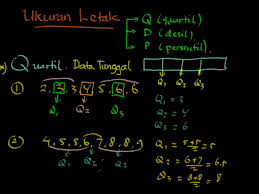 Ukuran Letak
Q (quartil)
D (desil)
P (persentil)
Q1 Q2 Q3
Quartil Data Tunggal
① 2, 3, 3, 4, 5, 6, 6
Q1 Q2 Q3
Q1 = 3
Q2 = 4
Q3 = 6
② 4, 5, 5, 6, 7, 8, 8, 9
Q1 Q2 Q2
Q1 = 5+5/2 = 5
Q2 = 6+7/2 = 6,5
Q3 = 8+8/2 = 8